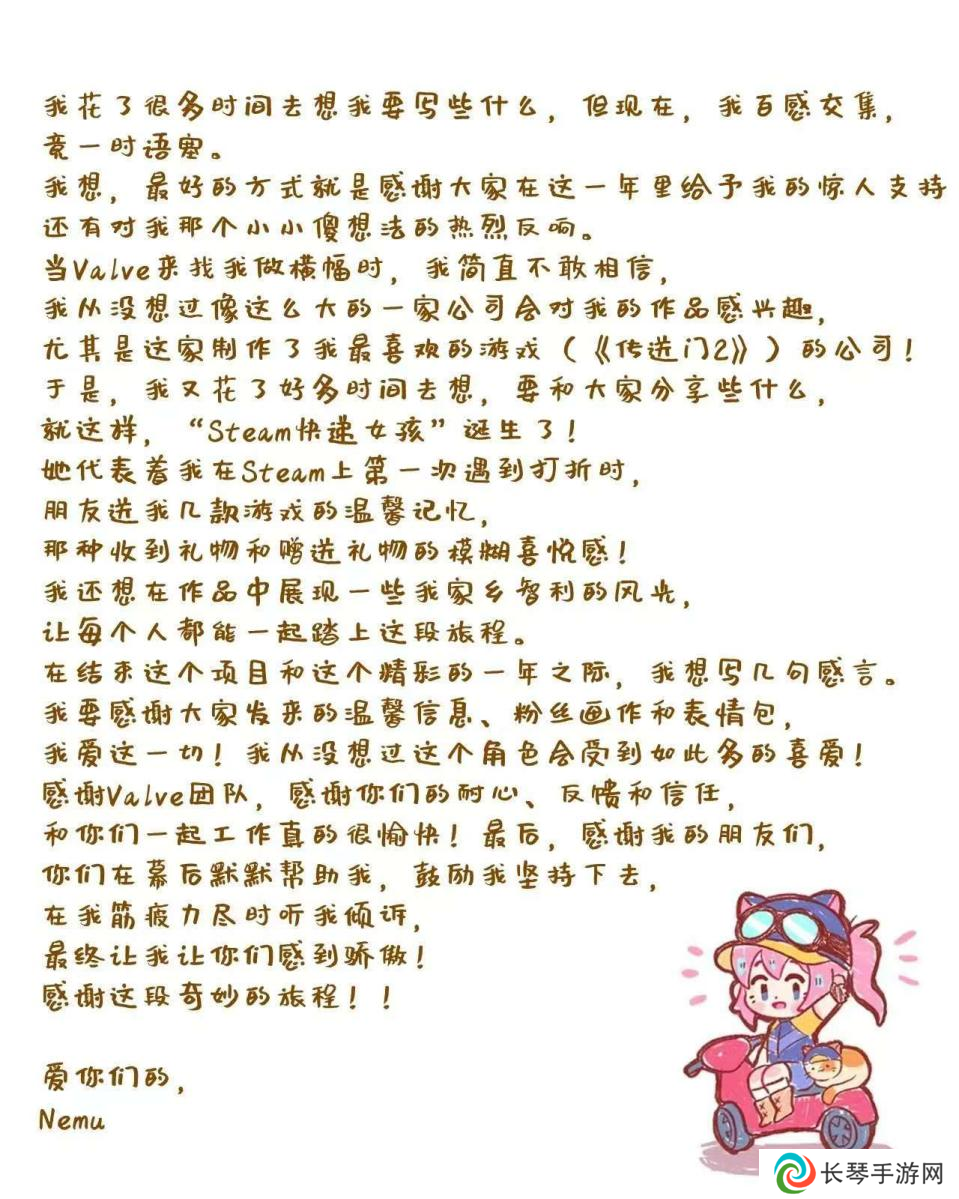 我花了很多时间去想我要写些什么，但现在，我百感交集，
竟一时语塞。
我想，最好的方式就是感谢大家在这一年里给予我的惊人支持
还有对我那个小小傻想法的热烈反响。
当Valve来找我做横幅时，我简直不敢相信，
我从没想过像这么大的一家公司会对我的作品感兴趣，
尤其是这家制作了我最喜欢的游戏（《传送门2》）的公司！
于是，我又花了好多时间去想，要和大家分享些什么，
就这样，“Steam快递女孩”诞生了！
她代表着我在Steam上第一次遇到打折时，
朋友送我几款游戏的温馨记忆，
那种收到礼物和赠送礼物的模糊喜悦感！
我还想在作品中展现一些我家乡智利的风光，
让每个人都能一起踏上这段旅程。
在结束这个项目和这个精彩的一年之际，我想写几句感言。
我要感谢大家发来的温馨信息、粉丝画作和表情包，
我爱这一切！我从没想过这个角色会受到如此多的喜爱！
感谢Valve团队，感谢你们的耐心、反馈和信任，
和你们一起工作真的很愉快！最后，感谢我的朋友们，
你们在幕后默默帮助我，鼓励我坚持下去，
在我筋疲力尽时听我倾诉，
最终让我让你们感到骄傲！
感谢这段奇妙的旅程！！
爱你们的，
Nemu
长琴手游网